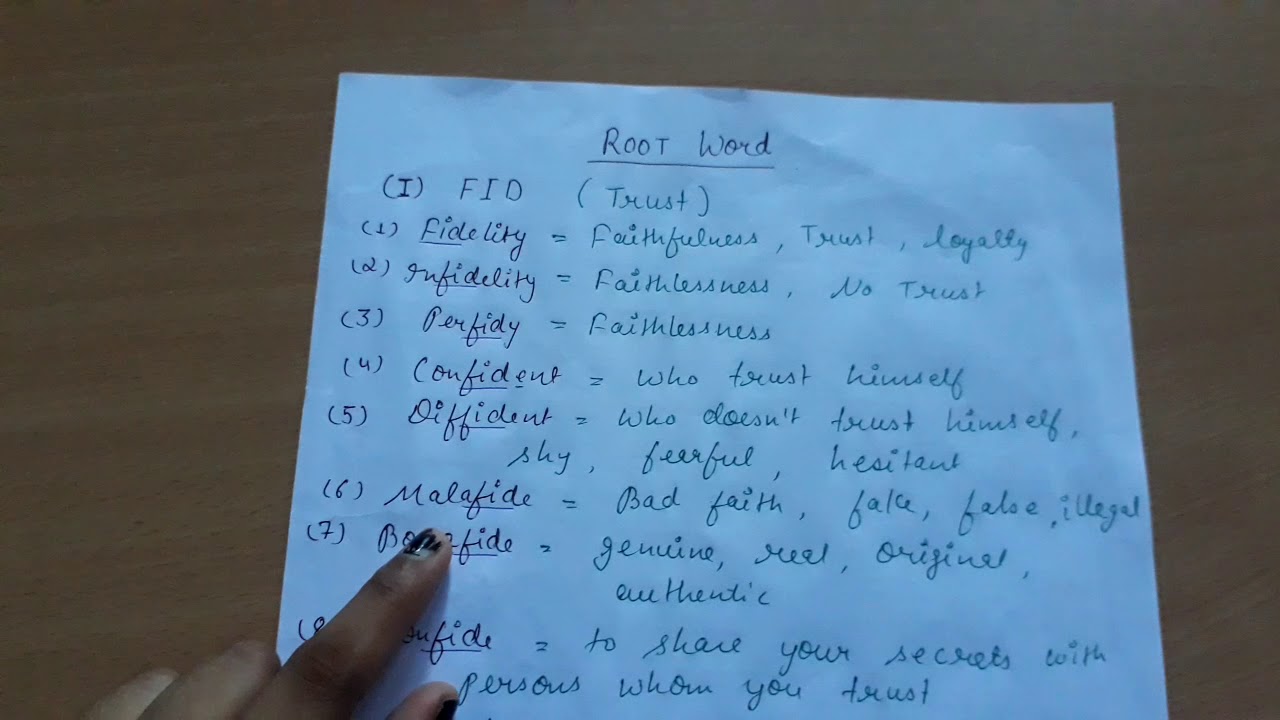 ROOT Word
(I) FID (Trust)
(1) Fidelity = Faithfulness, Trust, loyalty
(2) Infidelity = Faithlessness, No Trust
(3) Perfidy = Faithlessness
(4) Confident = who trust himself
(5) Diffident = who doesn't trust himself,
shy, fearful, hesitant
(6) Malafide = Bad faith, fake, false, illegal
(7) = genuine, real, original,
authentic
= to share your secrets with
persons whom you trust